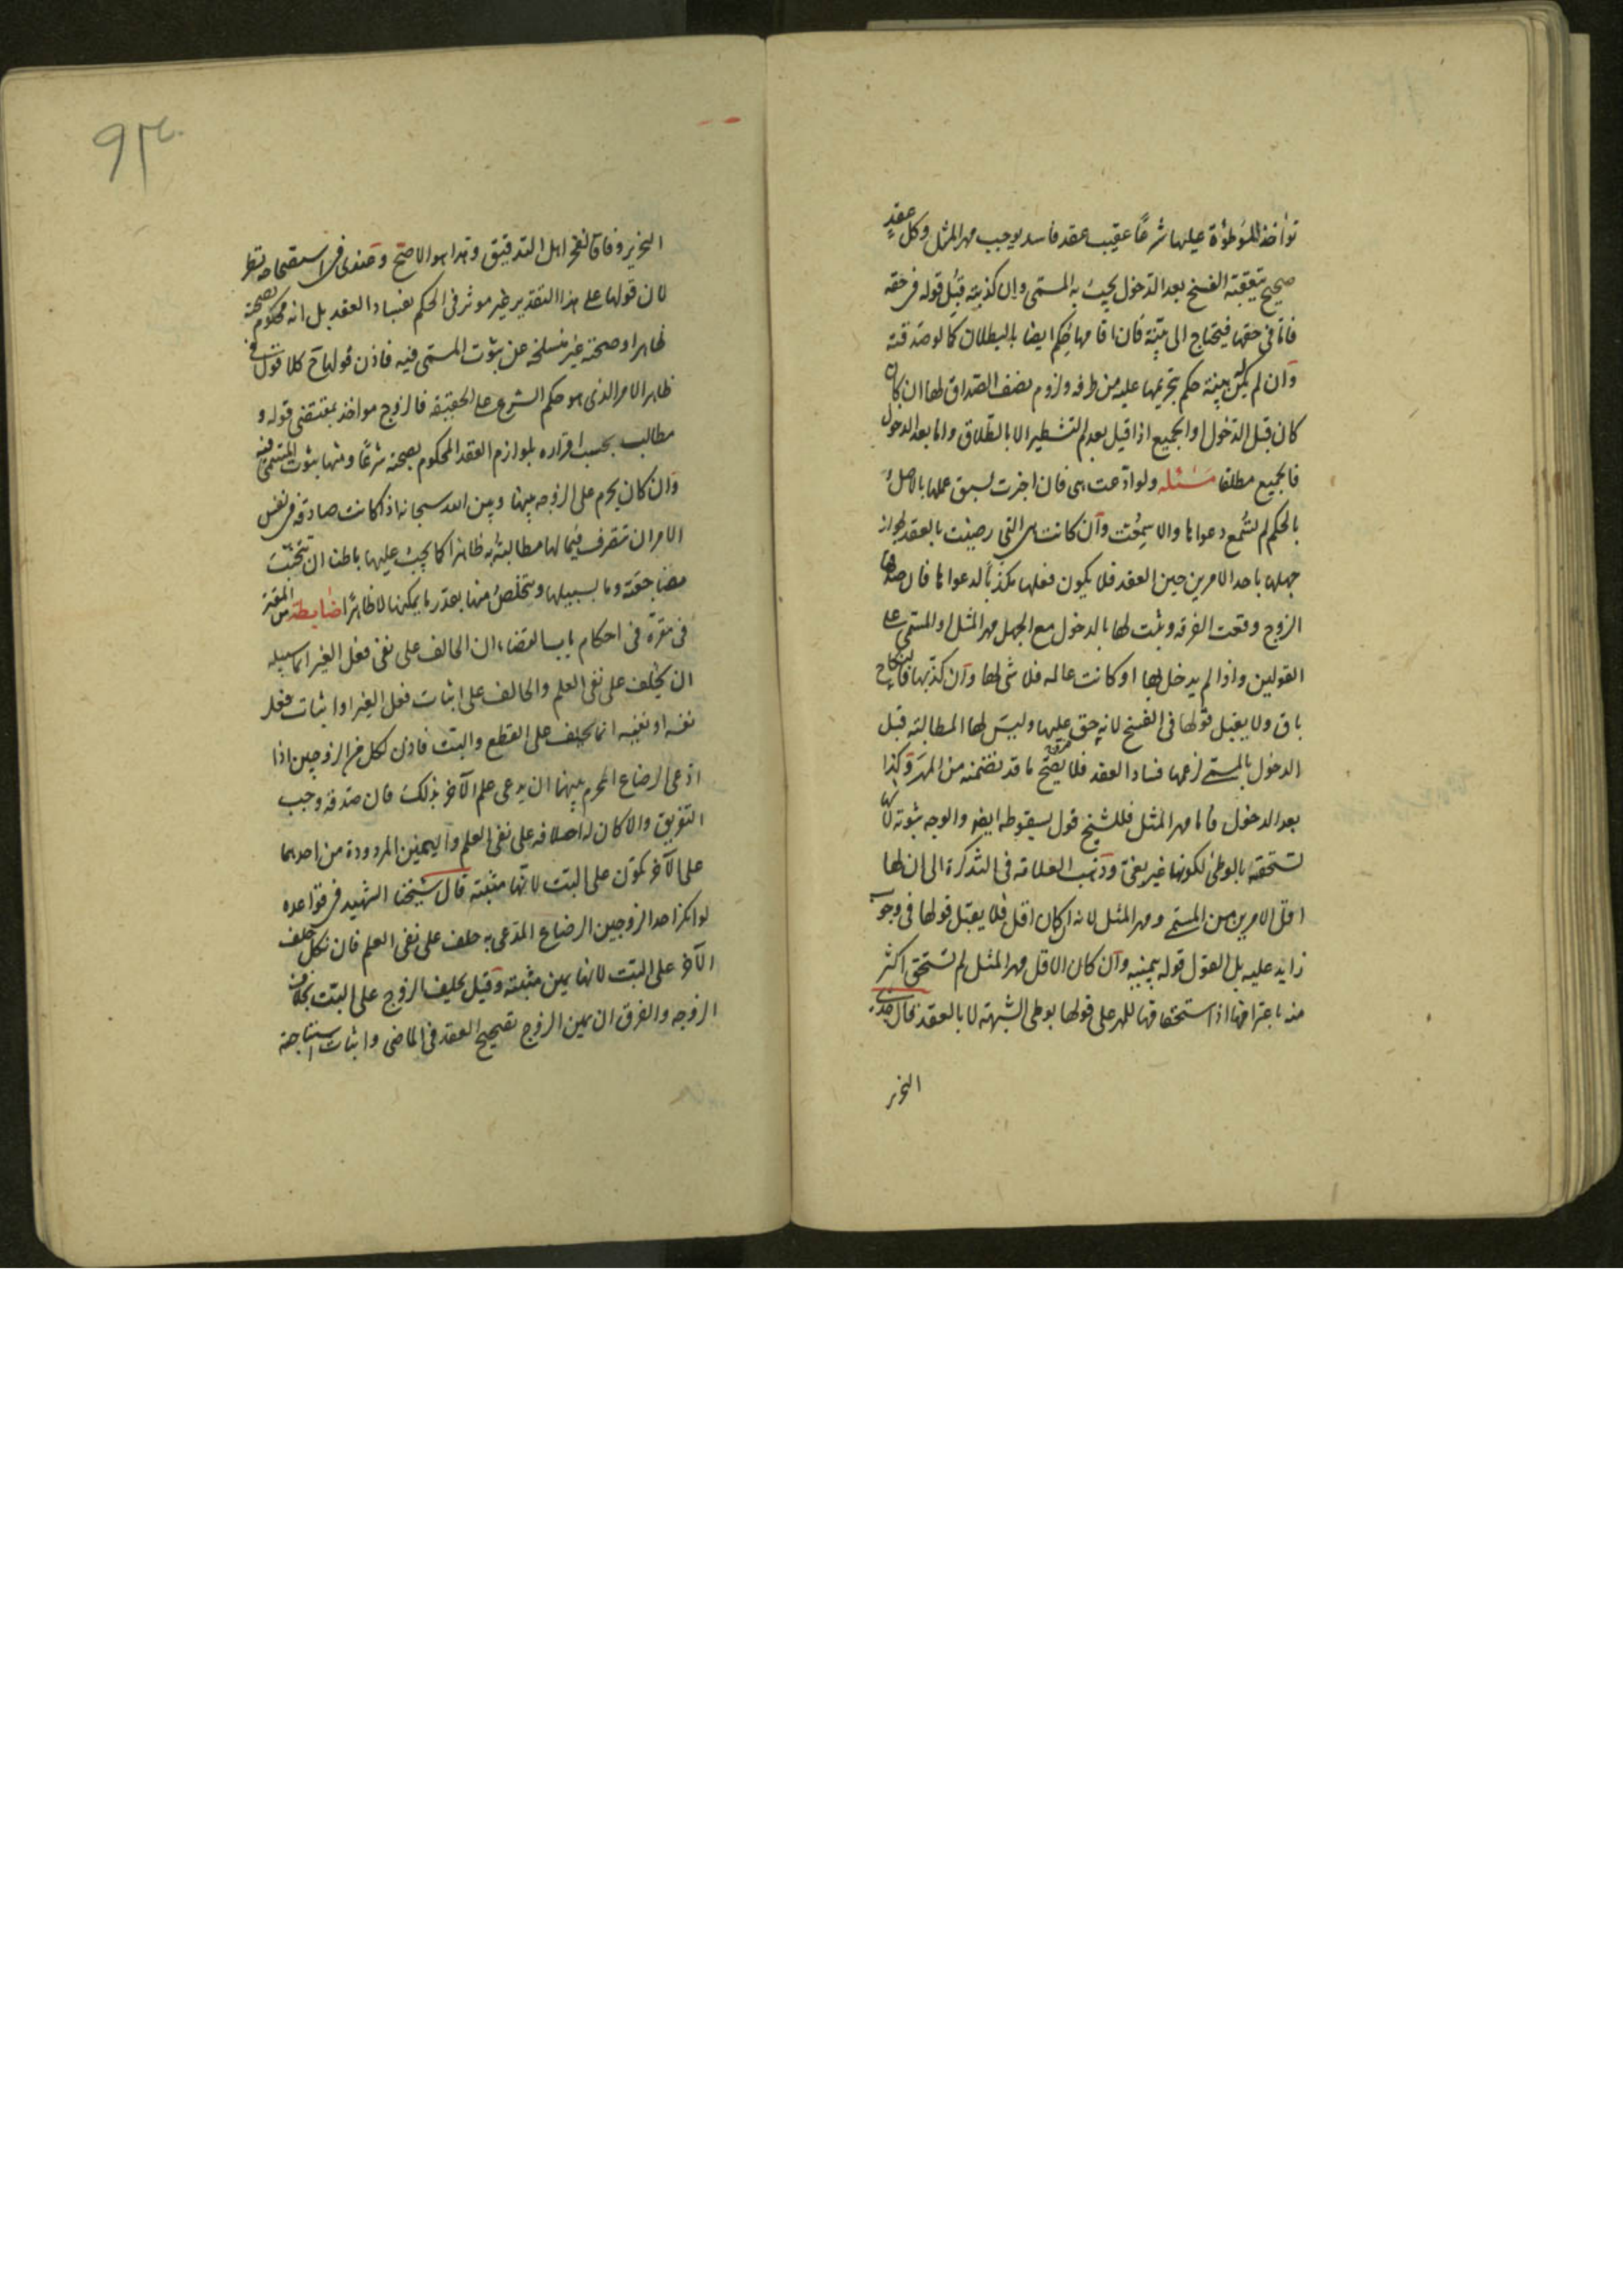 تواخذ للموطوة عليها شرعًا عقيب عقد فاسد يوجب مهر المثل وكل عقد
صحيح يتعقبه الفسخ بعد الدخول يجب به المسمى وان كذبته قبل قوله فى حقه
فاما فى حقها فيحتاج الى بينة فان اقامها حكم ايضا بالبطلان كما لو صدقته
وان لم يكن بينة حكم بتحريمها عليه من طرفه ولزوم نصف الصداق لها ان
كان قبل الدخول او الجميع اذا قيل بعدم التشطير الا بالطلاق واما بعد الدخول
فالجميع مطلقا مسئله ولو ادعت هى فان اخبرت لسبق علمها بالاصل و
بالحكم لم تسمع دعواها والا سمعت وان كانت هى التى رضيت بالعقد لجواز
جهلها باحد الامرين حين العقد فلا يكون فعلها مكذبًا لدعواها فان صدقها
الزوج وقعت الفرقه وثبت لها بالدخول مع الجهل مهر المثل او المسمى على
القولين واذا لم يدخل بها او كانت عالمه فلا شى لها وان كذبها فالنكاح
باق ولا يقبل قولها فى الفسخ لانه حق عليها وليس لها المطالبة قبل
الدخول بالمسمى لزعمها فساد العقد فلا يصح ما قد تضمنه من المهر وكذا
بعد الدخول فاما مهر المثل فللشيخ قول بسقوطه ايضو والوجه ثبوته لانها
تستحقه بالوطى لكونها غير بغى وذهب العلامه فى التذكرة الى ان لها
اقل الامرين من المسمى ومهر المثل لانه ان كان اقل فلا يقبل قولها فى وجوب
زايد عليه بل القول قوله بيمينه وان كان الاقل مهر المثل لم تستحق اكثر
منه باعترافها اذ استحقاقها للمهر على قولها بوطى الشبهة لا بالعقد قال جدى
النحرير
النحرير وفاقًا لفخر اهل التدقيق وهذا هو الاصح وعندى فى استصحاحه نظر
لان قولها على هذا التقدير غير موثر فى الحكم بفساد العقد بل انه محكوم بصحته
ظاهرا وصحته غير منسلخه عن ثبوت المسمى فيه فاذن قولها ح كلا قول فى
ظاهر الامر الذى هو حكم الشرع على الحقيقه فالزوج مواخذ بمقتضى قوله و
مطالب بحسب اقراره بلوازم العقد المحكوم بصحته شرعًا ومنها ثبوت المسمى فيه
وان كان يحرم على الزوجه بينها وبين الله سبحانه اذا كانت صادقه فى نفس
الامر ان تتصرف فيما لها مطالبته به ظاهرا كما يجب عليها باطنا ان تجتنب
مضاجعته وما بسبيلها ويتخلص منها بقدر ما يمكنها لا ظاهرًا ضابطه من المقرر
فى مقره فى احكام باب القضاء ان الحالف على نفى فعل الغير انما سبيله
ان يحلف على نفى العلم والحالف على اثبات فعل الغير او اثبات فعل
نفسه او نفيه انما يحلف على القطع والبت فاذن لكل من الزوجين اذا
ادعى الرضاع المحرم بينهما ان يدعى علم الآخر بذلك فان صدقه وجب
التفريق والا كان له احلافه على نفى العلم واليمين المردودة من احدهما
على الآخر تكون على البت لانها مثبتة قال شيخنا الشهيد فى قواعده
لو انكر احد الزوجين الرضاع المدعى به حلف على نفى العلم فان نكل حلف
الآخر على البت لانها يمين مثبتة وقيل يحلف الزوج على البت بخلاف
الزوجه والفرق ان يمين الزوج تصحيح العقد فى الماضى واثبات استباحة